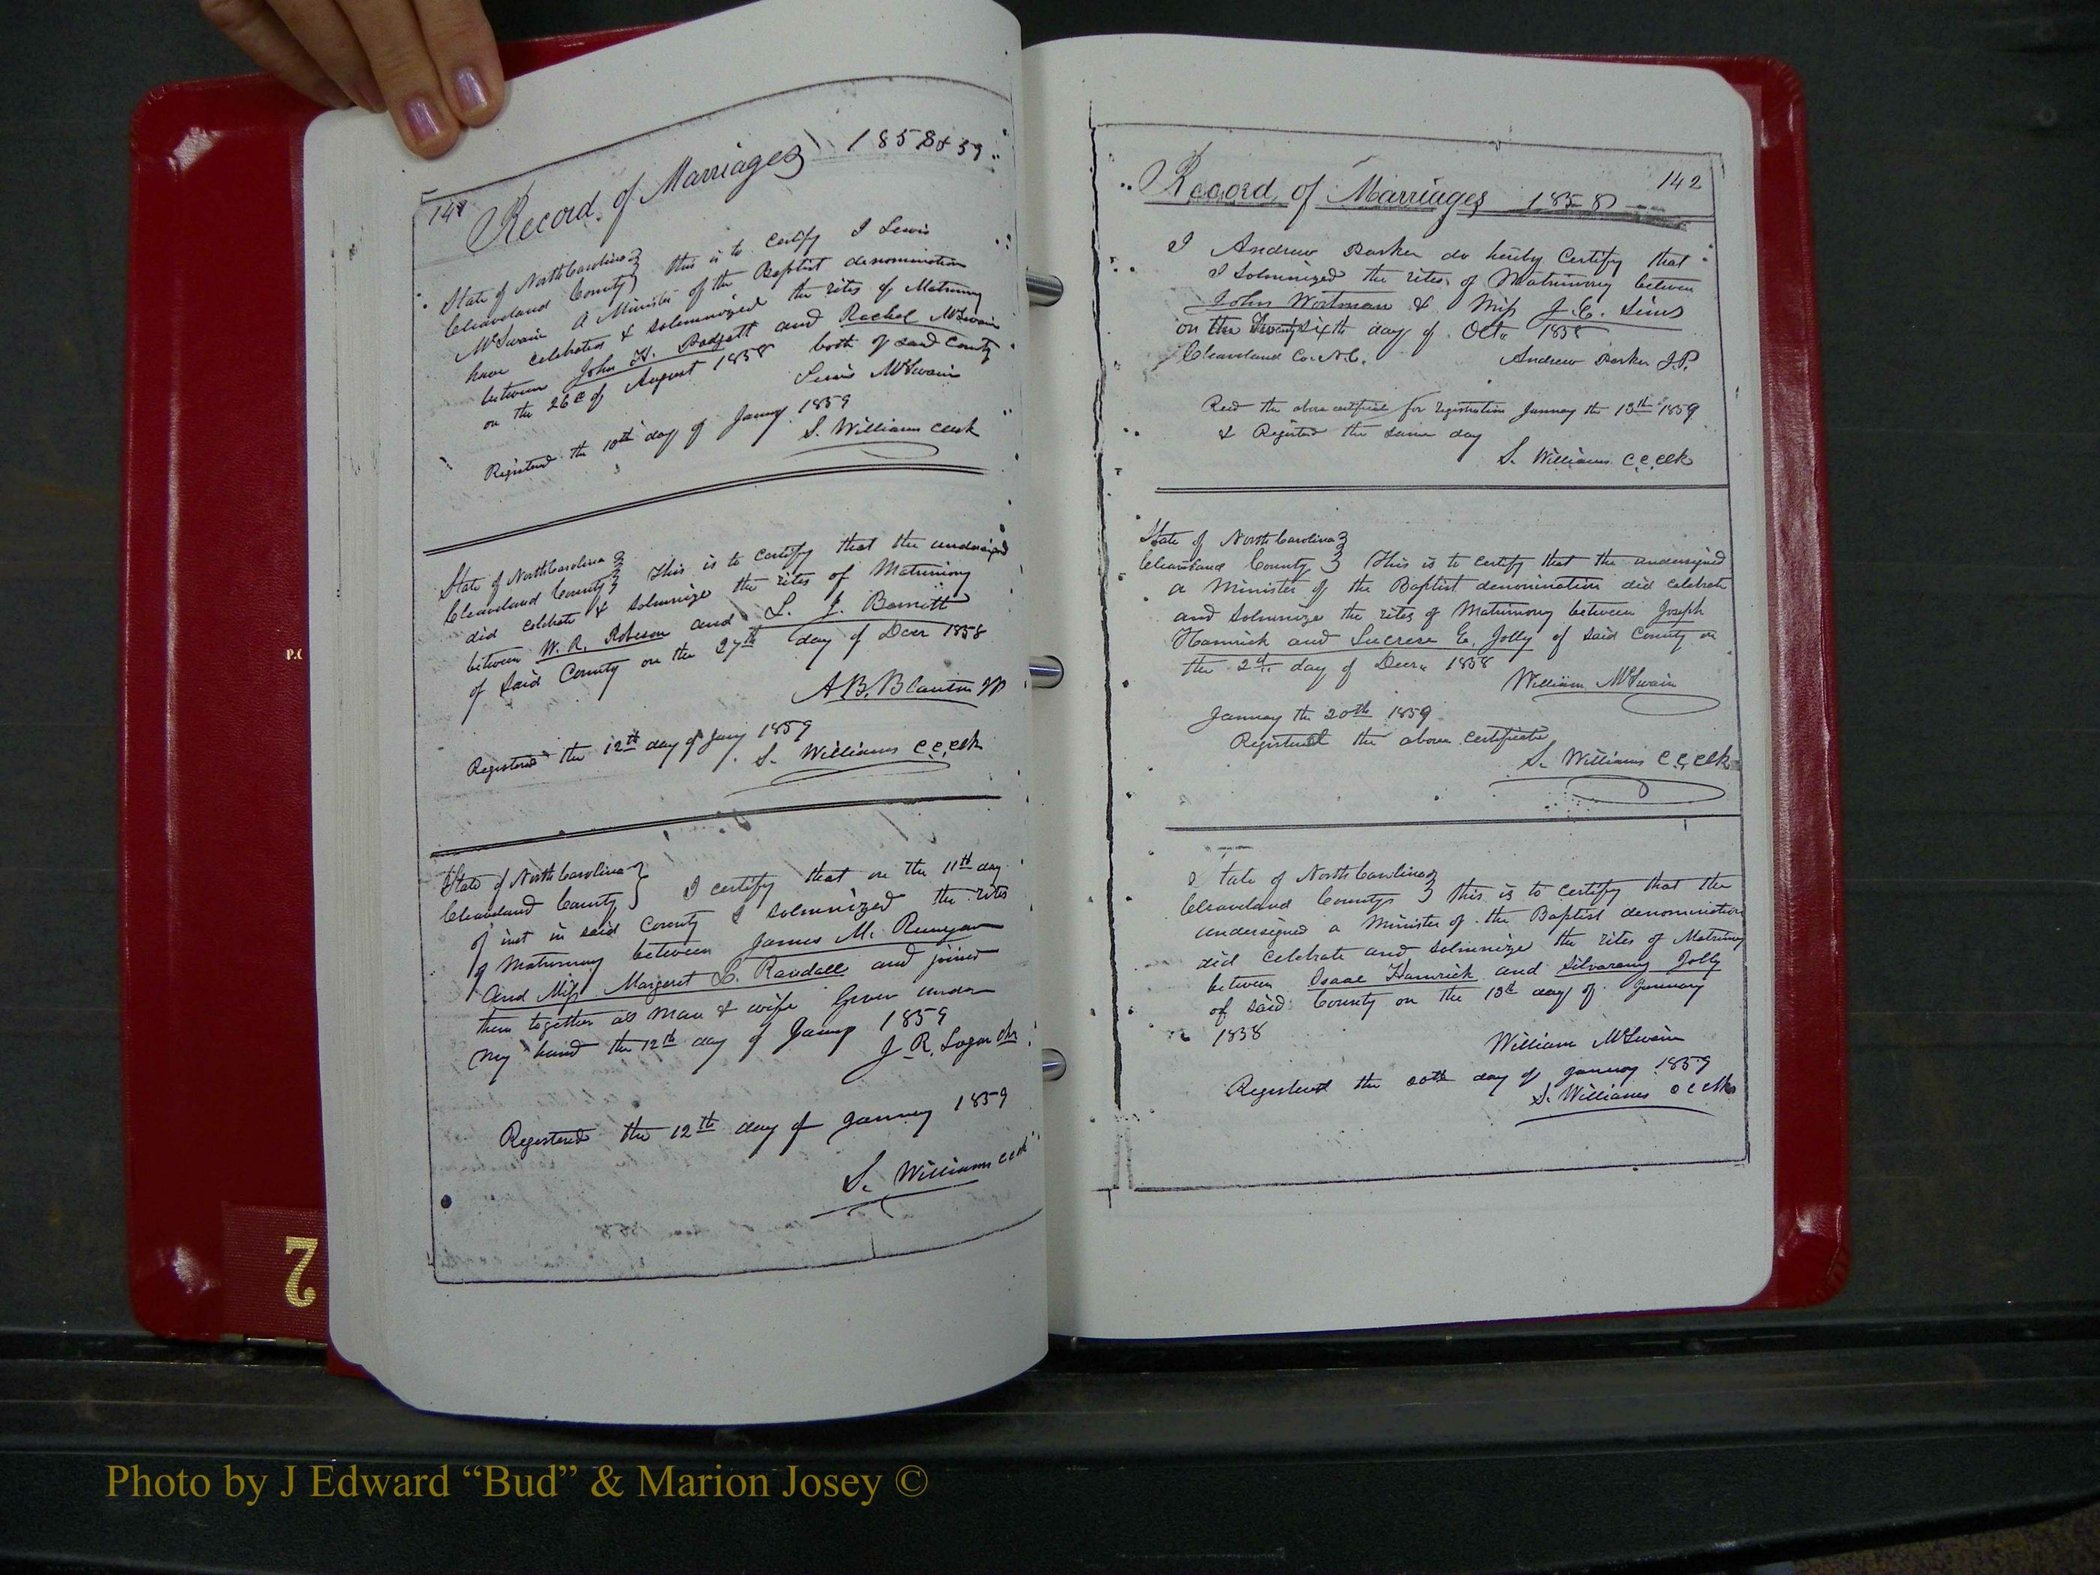 141 Record of Marriages 1858 & 59
State of North Carolina
Cleaveland County this is to certify I Lewis
McSwain A Minister of the Baptist denomination
have celebrated & solemnized the rites of Matrimony
between John H. Padgett and Rachel McSwain
on the 26th of August 1858 both of said County
Lewis McSwain
Registered the 10th day of Jany. 1859
S. Williams Clerk
State of North Carolina
Cleaveland County This is to certify that the undersigned
did celebrate & solemnize the rites of Matrimony
between W. R. Roberson and L. J. Barnett
of said County on the 27th day of Decr 1858
A. B. Blanton JP
Registered the 12th day of Jany 1859
S. Williams C.C. Clk
State of North Carolina
Cleaveland County I certify that on the 11th day
of inst in said County I solemnized the rites
of Matrimony between James M. Runyan
and Miss Margaret L. Randall and joined
them together as Man & wife Given under
my hand the 12th day of Jany 1859
J. R. Logan
Registered the 12th day of January 1859
S. Williams CClk
Record of Marriages 1858 142
I Andrew Barker do heirby Certify that
I Solemnized the rites of Matrimony between
John Wortman & Miss J. C. Sims
on the Twenty Sixth day of Octr 1858
Cleaveland Co. N.C. Andrew Barker J.P.
Recd the above certificate for registration January the 13th 1859
& Registed the same day
S. Williams C.C. Clk
State of North Carolina
Cleaveland County This is to certify that the undersigned
a Minister of the Baptist denomination did celebrate
and solemnize the rites of Matrimony between Joseph
Hamrick and E. Jolly of said County on
the 2d. day of Decr. 1858
William McSwain
January the 20th 1859
Registered the above certificate
S. Williams C.C. Clk
State of North Carolina
Cleaveland County this is to certify that the
undersigned a Minister of the Baptist denomination
did celebrate and solemnize the rites of Matrimony
between Isaac Hamrick and Jolly
of said County on the 13th day of January
1858
William McSwain
Registered the 20th day of January 1859
S. Williams C C Clk
P.O
2
Photo by J Edward “Bud” & Marion Josey ©